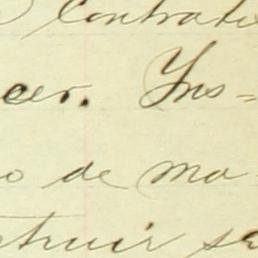 Contrato
cer. Ins=
o de ma
struir se